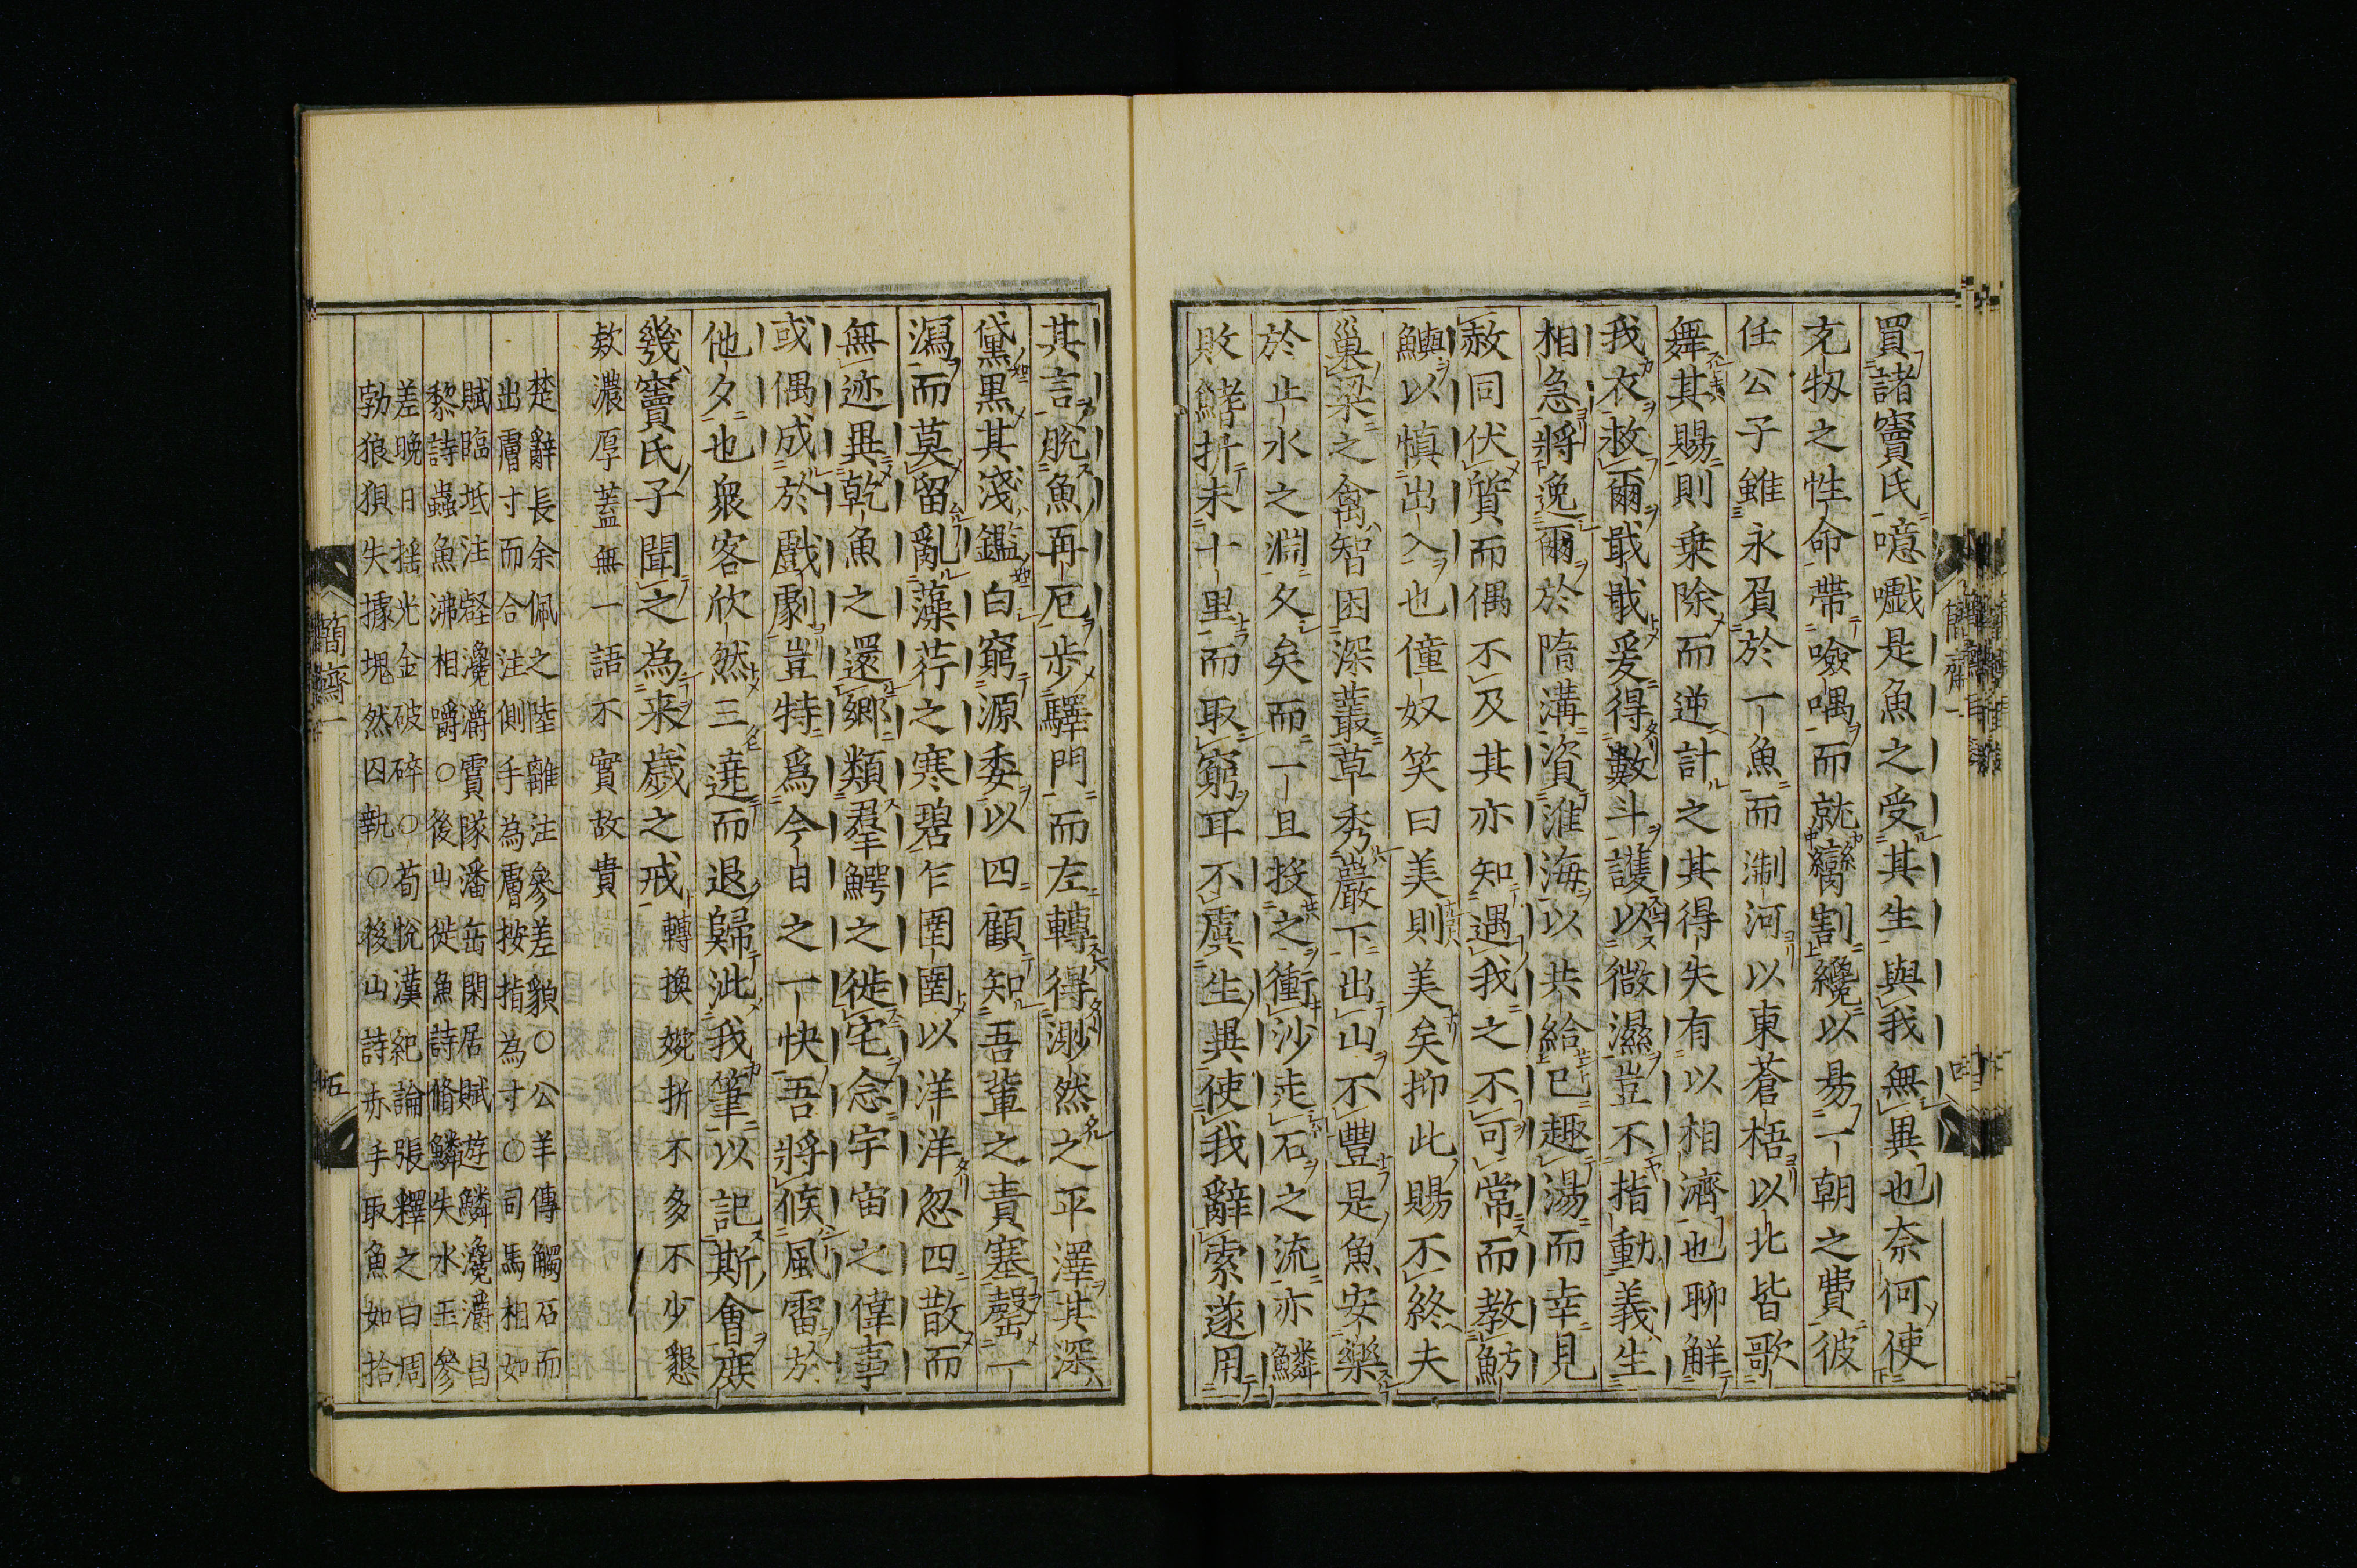 買諸竇氏噫嚱是魚之受其生與我無異也奈何使
充牣之性命帶噞喁而就臠割纔以易一朝之費彼
任公子雖永負於一魚而淛河以東蒼梧以北皆歌
舞其賜則乗除而逆計之其得失有以相濟也聊解
我衣救爾戢戢爰得數斗護以微濕豈不指動義生
相急將逸爾於隋溝資淮海以共給已趣湯而幸見
赦同伏質而偶不及其亦知遇我之不可常而教魴
鱮以慎出入也僮奴笑曰美則美矣抑此賜不終夫
巢梁之禽智困深叢草秀巖下出山不豐是魚安樂
於止水之淵久矣而一旦投之衝沙走石之流亦鱗
敗鰭折未十里而取窮耳不虞生異使我辭索遂用
其言脱魚再厄步驛門而左轉得渺然之平澤其深
黛黒其淺鑑白窮源委以四顧知吾輩之責塞罄一
瀉而莫留亂藻荇之寒碧乍圉圉以洋洋忽四散而
無迹異乾魚之還郷類羣鰐之徙宅念宇宙之偉事
或偶成於戲劇豈特爲今日之一快吾將候風雷於
他夕也衆客欣然三遶而退歸泚我筆以記斯會庶
幾竇氏子聞之為来歳之戒轉換婉折不多不少懇
欵濃厚蓋無一語不實故貴
楚辭長余佩之陸離注參差貌○公羊傳觸石而
出膚寸而合注側手為膚按指為寸○司馬相如
賦臨坻注壑瀺灂霣隊潘岳閑居賦遊鱗瀺灂昌
黎詩蟲魚沸相嚼○後山從魚詩脩鱗失水玉參
差晩日揺光金破碎○荀悅漢紀論張釋之曰周
勃狼狽失據塊然囚執○後山詩赤手取魚如拾
簡齋一
五